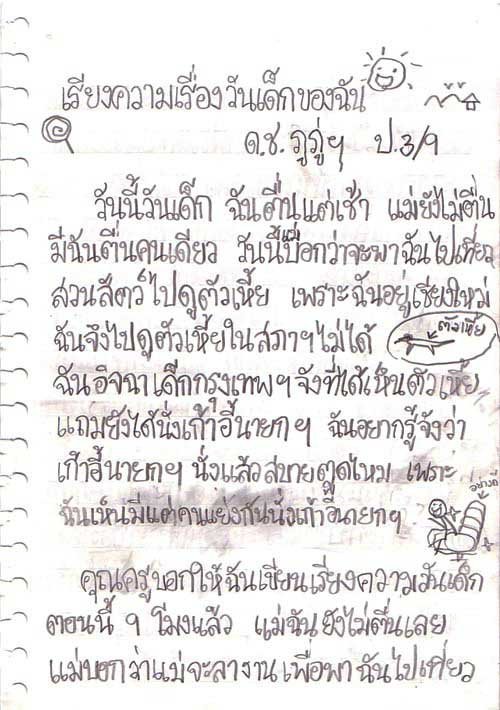 เรียงความเรื่องวันเด็กของฉัน
ด.ช. ภูภู่ฯ ป.3/9
วันนี้วันเด็ก ฉันตื่นแต่เช้า แม่ยังไม่ตื่น
มีฉันตื่นคนเดียว วันนี้แม่บอกว่าจะพาฉันไปเที่ยว
สวนสัตว์ไปดูตัวเหี้ย เพราะฉันอยู่เชียงใหม่
ฉันจึงไปดูตัวเหี้ยในสภาฯไม่ได้
ตัวเหี้ย
ฉันอิจฉาเด็กกรุงเทพฯจังที่ได้เห็นตัวเหี้ย
แถมยังได้นั่งเก้าอี้นายกฯ ฉันอยากรู้จังว่า
เก้าอี้นายกฯ นั่งแล้วสบายตูดไหม เพราะ
ฉันเห็นมีแต่คนแย่งกันนั่งเก้าอี้นายกฯ
คุณครูบอกให้ฉันเขียนเรียงความวันเด็ก
ตอนนี้ ๑ โมงแล้ว แม่ฉันยังไม่ตื่นเลย
แม่บอกว่าแม่จะลางานเพื่อพาฉันไปเที่ยว